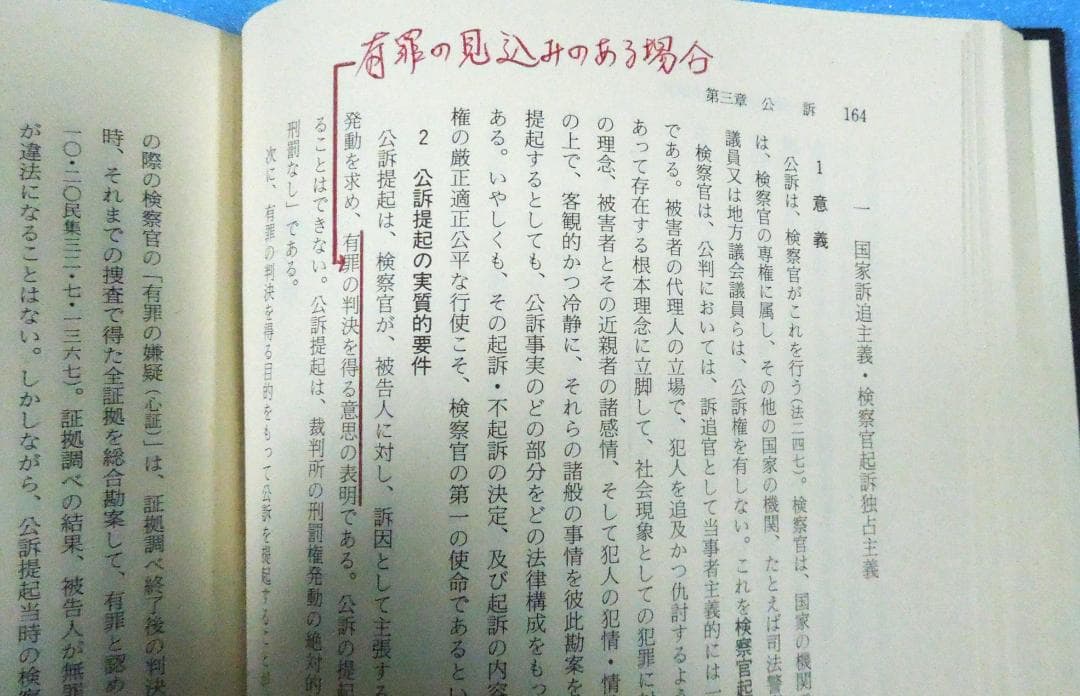 有罪の見込みのある場合
第三章 公 訴 164
一 国家訴追主義・検察官起訴独占主義
1 意 義
公訴は、検察官がこれを行う(法二四七)。検察官は、国家の機関
は、検察官の専権に属し、その他の国家の機関、たとえば司法警
議員又は地方議会議員らは、公訴権を有しない。これを検察官起
検察官は、公判においては、訴追官として当事者主義的には一
である。被害者の代理人の立場で、犯人を追及かつ仇討するよう
あって存在する根本理念に立脚して、社会現象としての犯罪に対
の理念、被害者とその近親者の諸感情、そして犯人の犯情・情
の上で、客観的かつ冷静に、それらの諸般の事情を彼此勘案を
提起するとしても、公訴事実のどの部分をどの法律構成をもっ
ある。いやしくも、その起訴・不起訴の決定、及び起訴の内容
権の厳正適正公平な行使こそ、検察官の第一の使命であるとい
2 公訴提起の実質的要件
公訴提起は、検察官が、被告人に対し、訴因として主張する
発動を求め、有罪の判決を得る意思の表明である。公訴の提起
ることはできない。公訴提起は、裁判所の刑罰権発動の絶対的
刑罰なし」である。
次に、有罪の判決を得る目的をもって公訴を提起すること
の際の検察官の「有罪の嫌疑(心証)」は、証拠調べ終了後の判決
時、それまでの捜査で得た全証拠を総合勘案して、有罪と認め
一〇・二〇民集三二・七・一三六七)。証拠調べの結果、被告人が無罪
が違法になることはない。しかしながら、公訴提起当時の検察